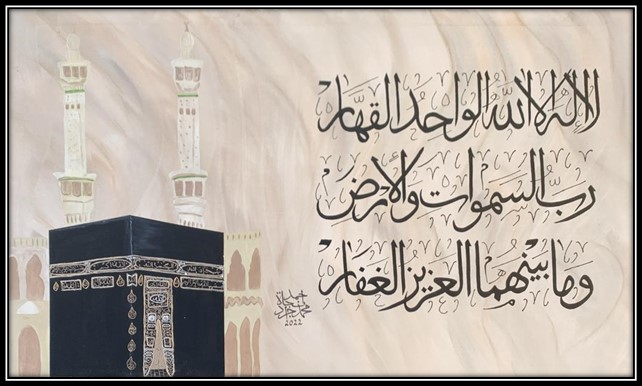 لا إله إلا الله الواحد القهّار
ربّ السموات والأرض
وما بينهما العزيز الغفار
2022